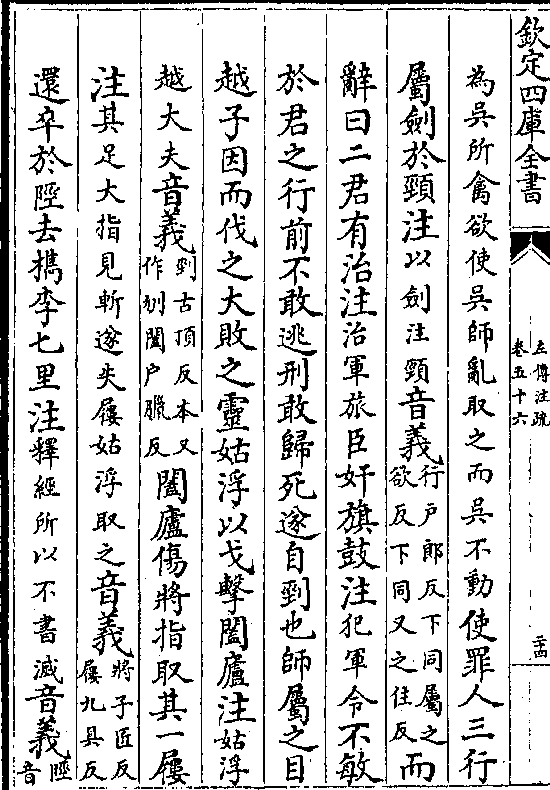 欽定四庫全書
左傳注疏
卷五十六
二十四
為吳所禽欲使吳師亂取之而吳不動使罪人三行
屬劍於頸注以劍注頸音義行戶郎反下同屬之欲反下同又之住反而
辭曰二君有治注治軍旅臣奸旗鼓注犯軍令不敏
於君之行前不敢逃刑敢歸死遂自剄也師屬之目
越子因而伐之大敗之靈姑浮以戈擊闔廬注姑浮
越大夫音義剄古頂反本又作刎闔戶臘反闔廬傷將指取其一屨
注其足大指見斬遂失屨姑浮取之音義將子匠反屨九具反
還卒於陘去檇李七里注釋經所以不書滅音義陘音